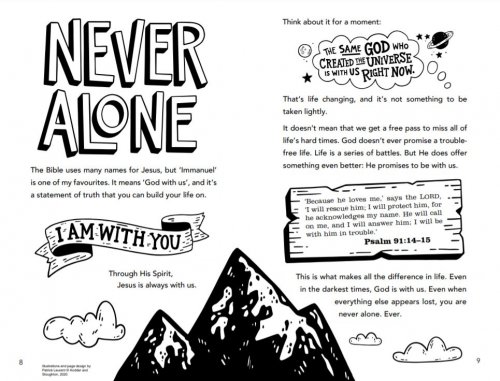 NEVER
ALONE
The Bible uses many names for Jesus, but ‘Immanuel’
is one of my favourites. It means ‘God with us’, and it’s
a statement of truth that you can build your life on.
I AM WITH YOU
Through His Spirit,
Jesus is always with us.
8
Illustrations and page design by
Patrick Laurent © Hodder and
Stoughton, 2020
Think about it for a moment:
THE SAME GOD WHO
CREATED THE UNIVERSE
IS WITH US RIGHT NOW.
That’s life changing, and it’s not something to be
taken lightly.
It doesn’t mean that we get a free pass to miss all of
life’s hard times. God doesn’t ever promise a trouble-
free life. Life is a series of battles. But He does offer
something even better: He promises to be with us.
‘Because he loves me,’ says the LORD,
‘I will rescue him; I will protect him, for
he acknowledges my name. He will call
on me, and I will answer him; I will be
with him in trouble.’
Psalm 91:14–15
This is what makes all the difference in life. Even
in the darkest times, God is with us. Even when
everything else appears lost, you are
never alone. Ever.
9